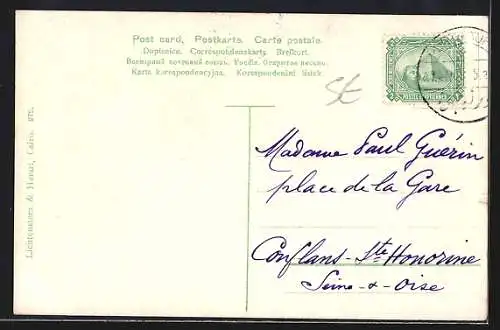 Post card, Postkarte. Carte postale.
Dopisnice. Correspondenskarts. Brefkort.
Всемирный почтовый союзъ. Россiя. Открытое письмо.
Karta korrespondencyjna. Korrespondenční lístek.
Lichtenstern & Harari, Cairo.
Madame Paul Guérin
place de la Gare
Conflans-Ste Honorine
Seine-&-Oise